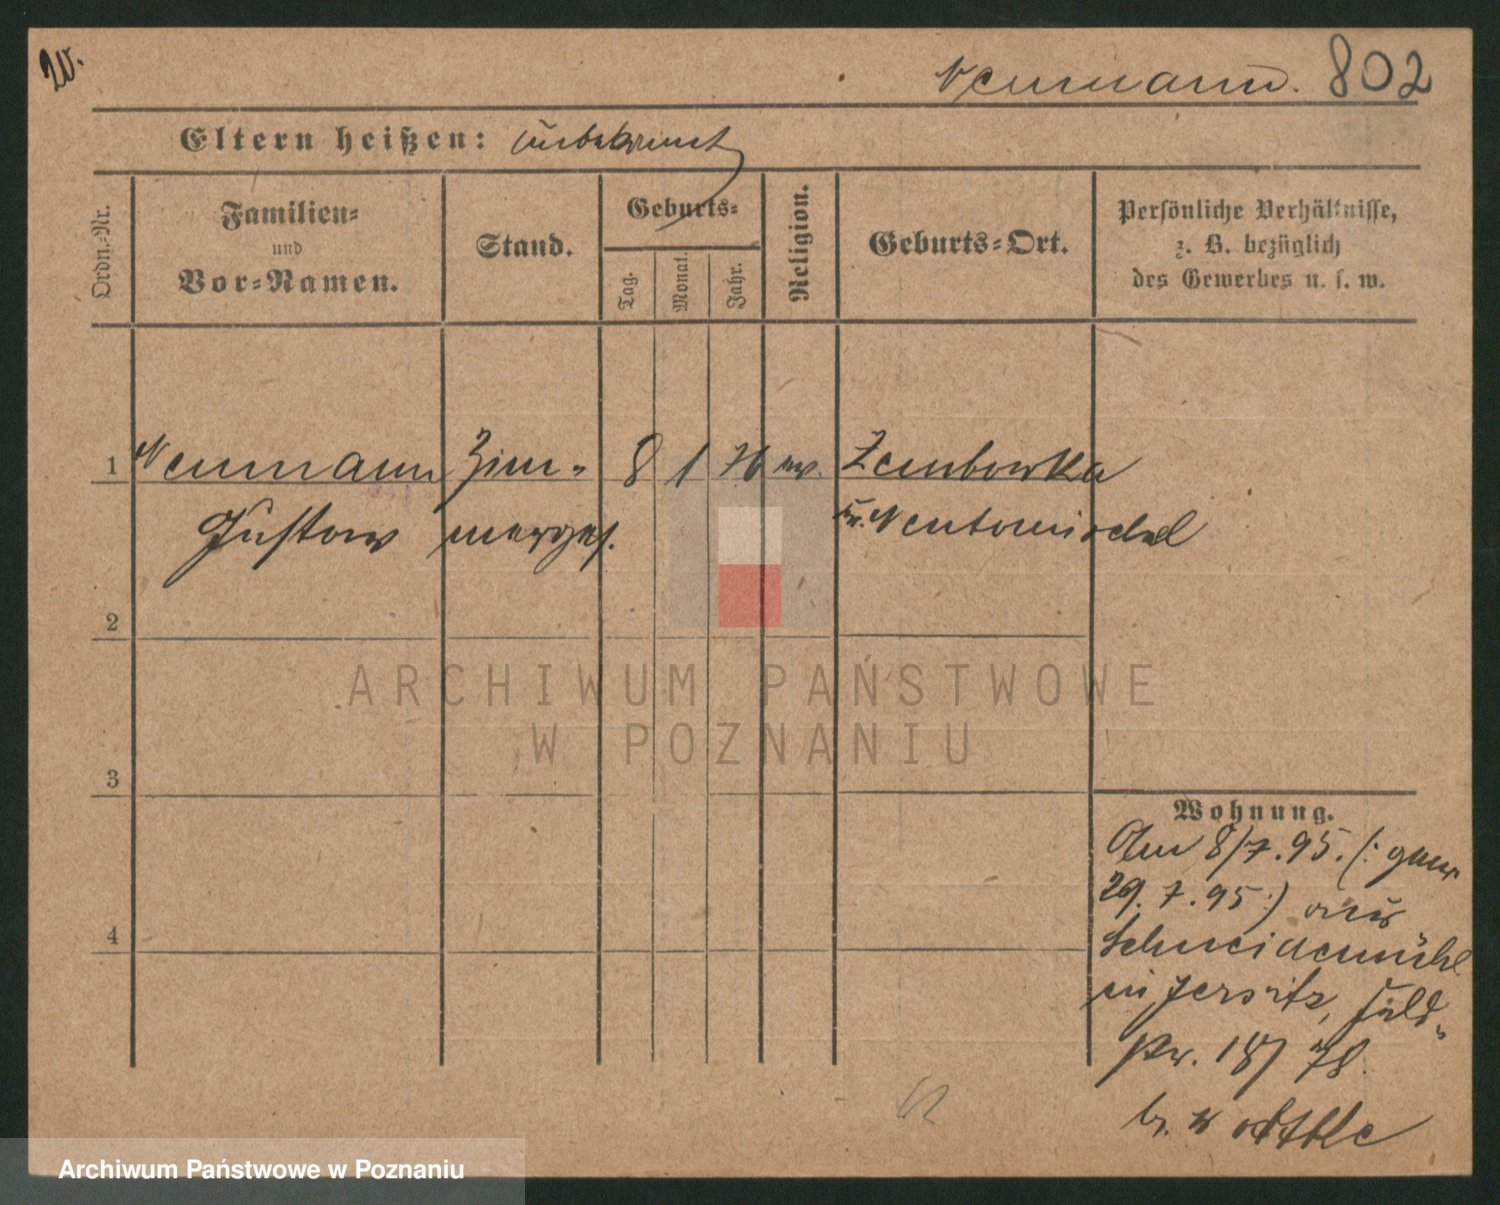 20.
Neumann. 802
Eltern heißen: unbekannt
Ordn.=Nr.
Familien=
und
Vor=Namen.
Stand.
Geburts=
Tag.
Monat.
Jahr.
Religion.
Geburts=Ort.
Persönliche Verhältnisse,
z. B. bezüglich
des Gewerbes u. s. w.
1 Neumann Zim= 8 1 76 ev. Zembowka
Gustav merges. Kr. Neutomischel
2
3
4
ARCHIWUM PAŃSTWOWE
W POZNANIU
Wohnung.
Am 8/7.95. (: gem
29.7.95:) aus
Schneidemühl
in Jersitz, Feld=
b.
Archiwum Państwowe w Poznaniu